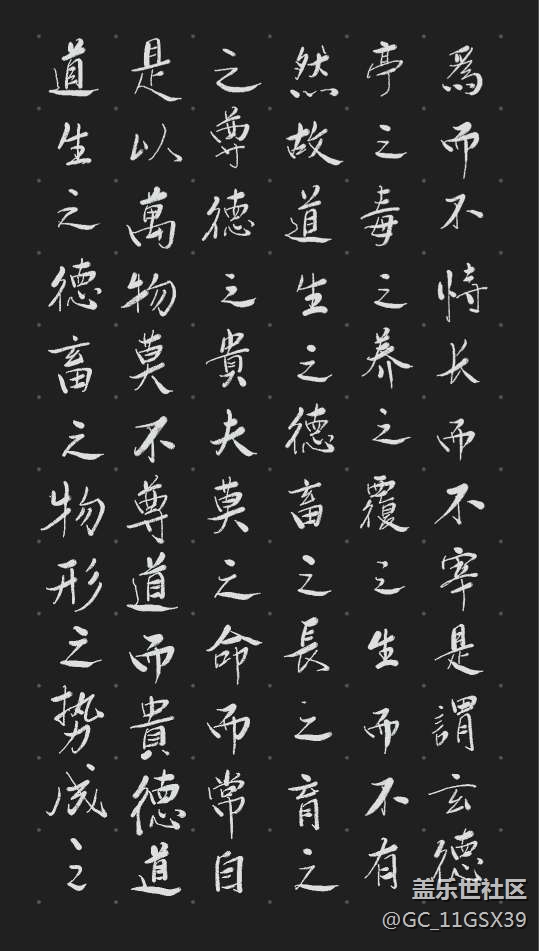 道生之德畜之物形之势成之
是以萬物莫不尊道而貴德道
之尊德之貴夫莫之命而常自
然故道生之德畜之長之育之
亭之毒之养之覆之生而不有
為而不恃长而不宰是謂玄德
盖乐世社区
@GC_11GSX39